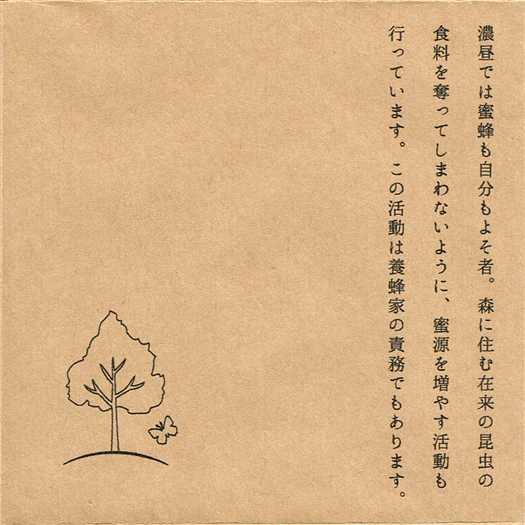 濃昼では蜜蜂も自分もよそ者。森に住む在来の昆虫の
食料を奪ってしまわないように、蜜源を増やす活動も
行っています。この活動は養蜂家の責務でもあります。